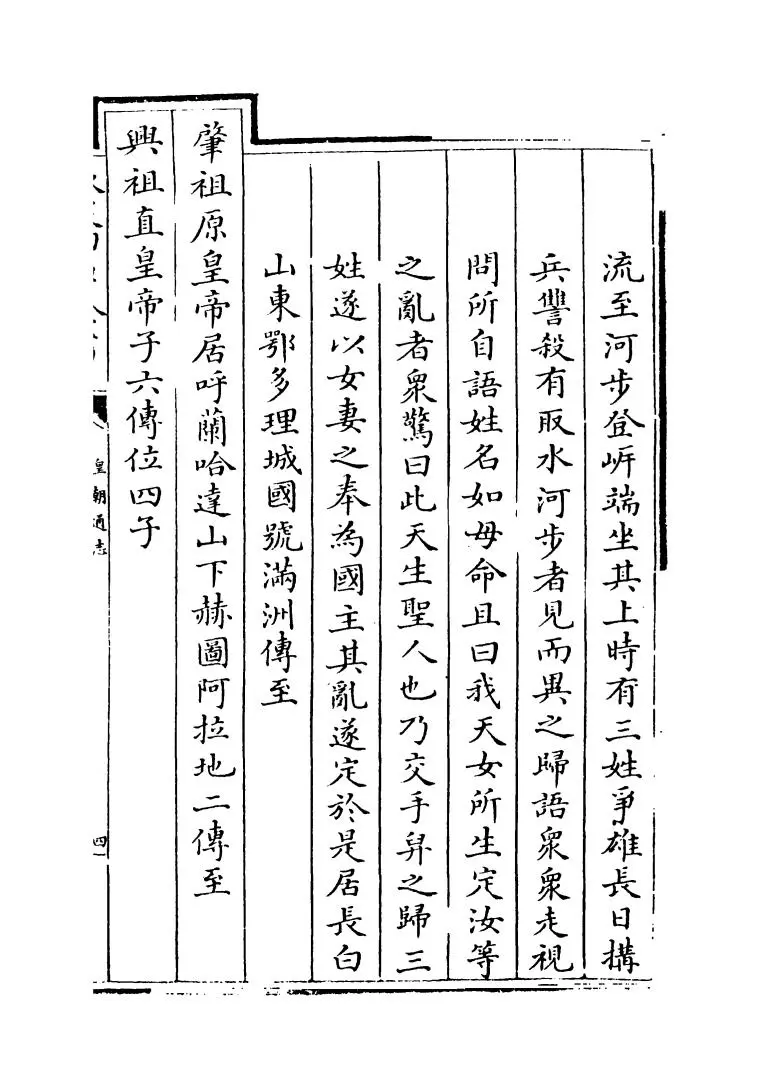 流至河步登㟁端坐其上時有三姓爭雄長日搆
兵讐殺有取水河步者見而異之歸語衆衆走視
問所自語姓名如母命且曰我天女所生定汝等
之亂者衆驚曰此天生聖人也乃交手舁之歸三
姓遂以女妻之奉為國主其亂遂定於是居長白
山東鄂多理城國號滿洲傳至
肇祖原皇帝居呼蘭哈達山下赫圖阿拉地二傳至
興祖直皇帝子六傳位四子
皇朝通志
四